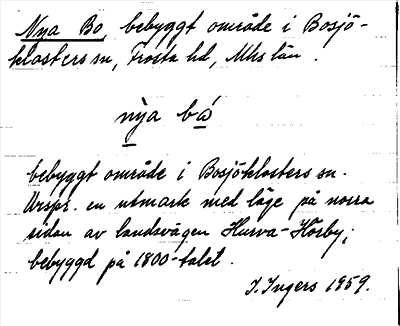 Nya Bo, bebyggt område i Bosjö-
klosters sn, Frosta hd, Mhs län.
nya bó
bebyggt område i Bosjöklosters sn.
Urspr. en utmark med läge på norra
sidan av landsvägen Hurva-Hörby;
bebyggd på 1800-talet.
I. Ingers 1959.